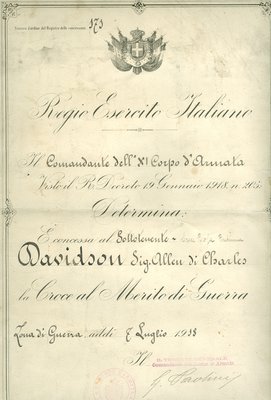 Numero d'ordine del Registro delle concessioni 573
Regio Esercito Italiano
Il Comandante dell' XI Corpo d'Armata
Visto il R. Decreto 19 Gennaio 1918, n. 205
Determina:
È concessa al Sottotenente -
Davidson Sig. Allen di Charles
la Croce al Merito di Guerra
Zona di Guerra, addì 8 Luglio 1918
Il